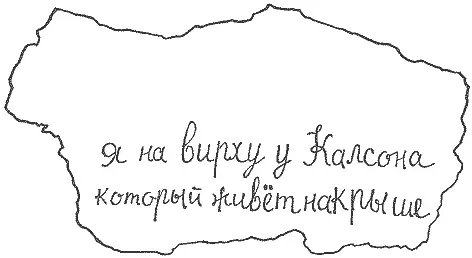 я на вирху у Калсона
который живёт накрыше